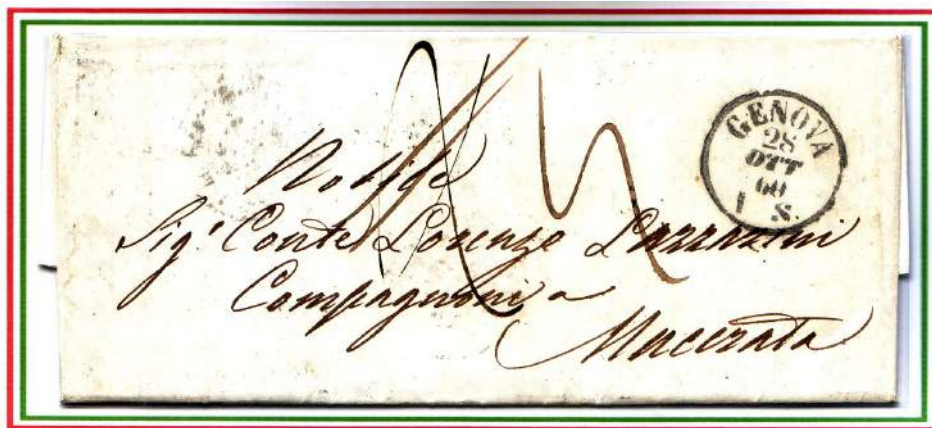 GENOVA
28
OTT
60
1 S.
Nobile
Sig.r Conte Lorenzo Lazzarini
Compagnoni a
Macerata